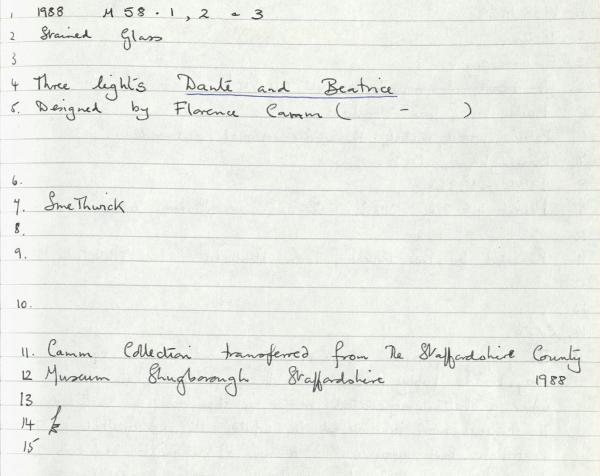 1 1988 M 58 . 1, 2 & 3
2 Stained Glass
3
4 Three lights Danté and Beatrice
5. Designed by Florence Camm ( - )
6.
7. Smethwick
8.
9.
10.
11. Camm Collection transferred from The Staffordshire County
12 Museum Shugborough Staffordshire 1988
13
14
15